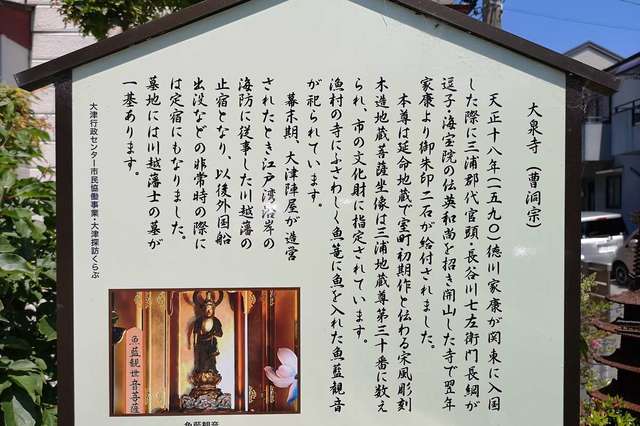 大泉寺 (曹洞宗)
天正十八年(一五九〇)徳川家康が関東に入国
した際に三浦郡代官頭・長谷川七左衛門長綱が
逗子・海宝院の伝英和尚を招き開山した寺で翌年
家康より御朱印二石が給付されました。
本尊は延命地蔵で室町初期作と伝わる宋風彫刻
木造地蔵菩薩坐像は三浦地蔵尊第三十番に数え
られ、市の文化財に指定されています。
漁村の寺にふさわしく魚篭に魚を入れた魚藍観音
が祀られています。
幕末期、大津陣屋が造営
されたとき江戸湾沿岸の
海防に従事した川越藩の
止宿となり、以後外国船
出没などの非常時の際に
は定宿にもなりました。
墓地には川越藩士の墓が
一基あります。
大津行政センター市民協働事業・大津探訪くらぶ
魚藍観世音菩薩
魚藍観音